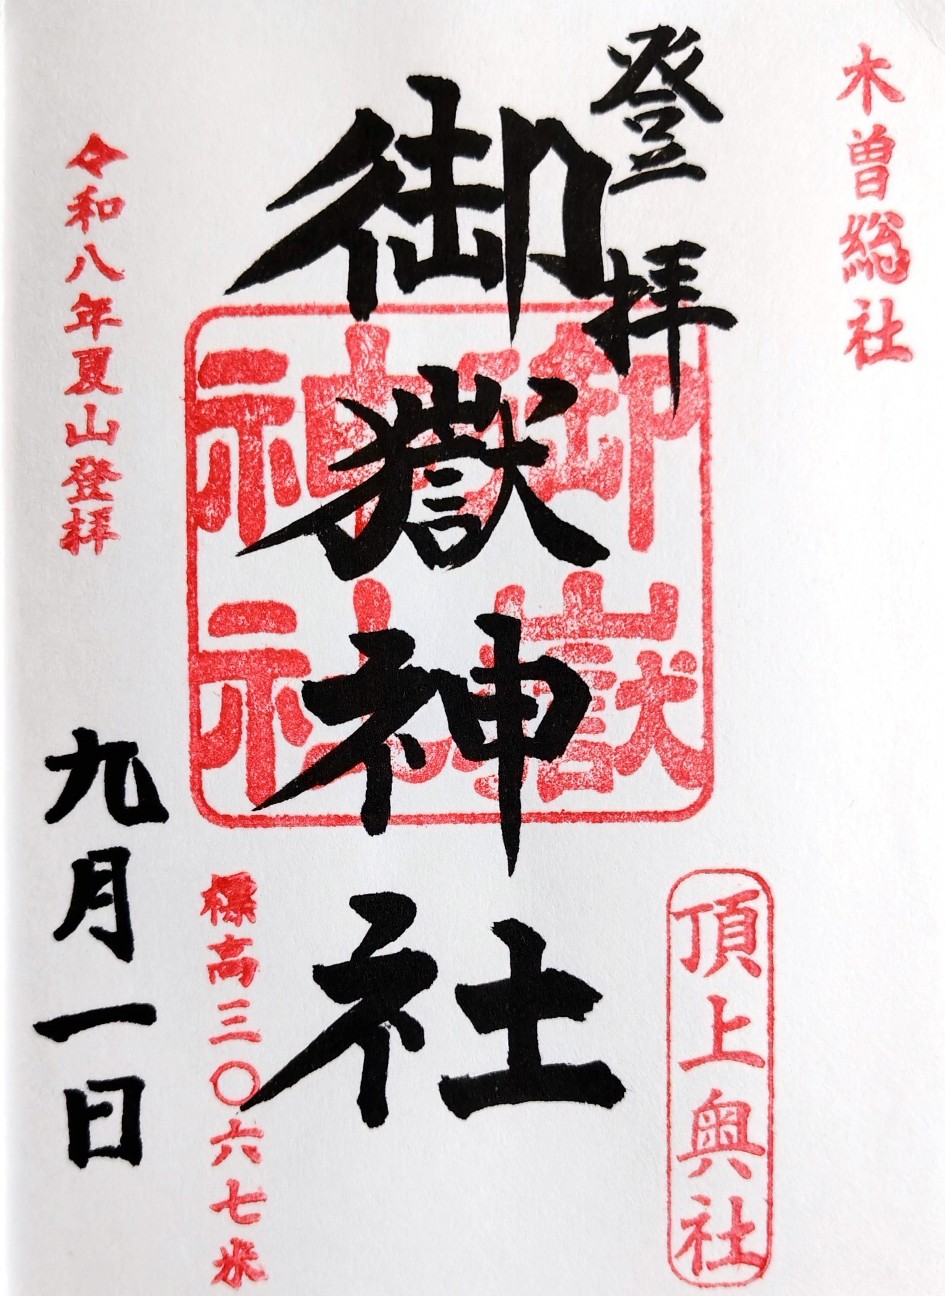 木曽総社
登拝
御嶽神社
御嶽神社
頂上奥社
標高三〇六七米
令和八年夏山登拝
九月一日